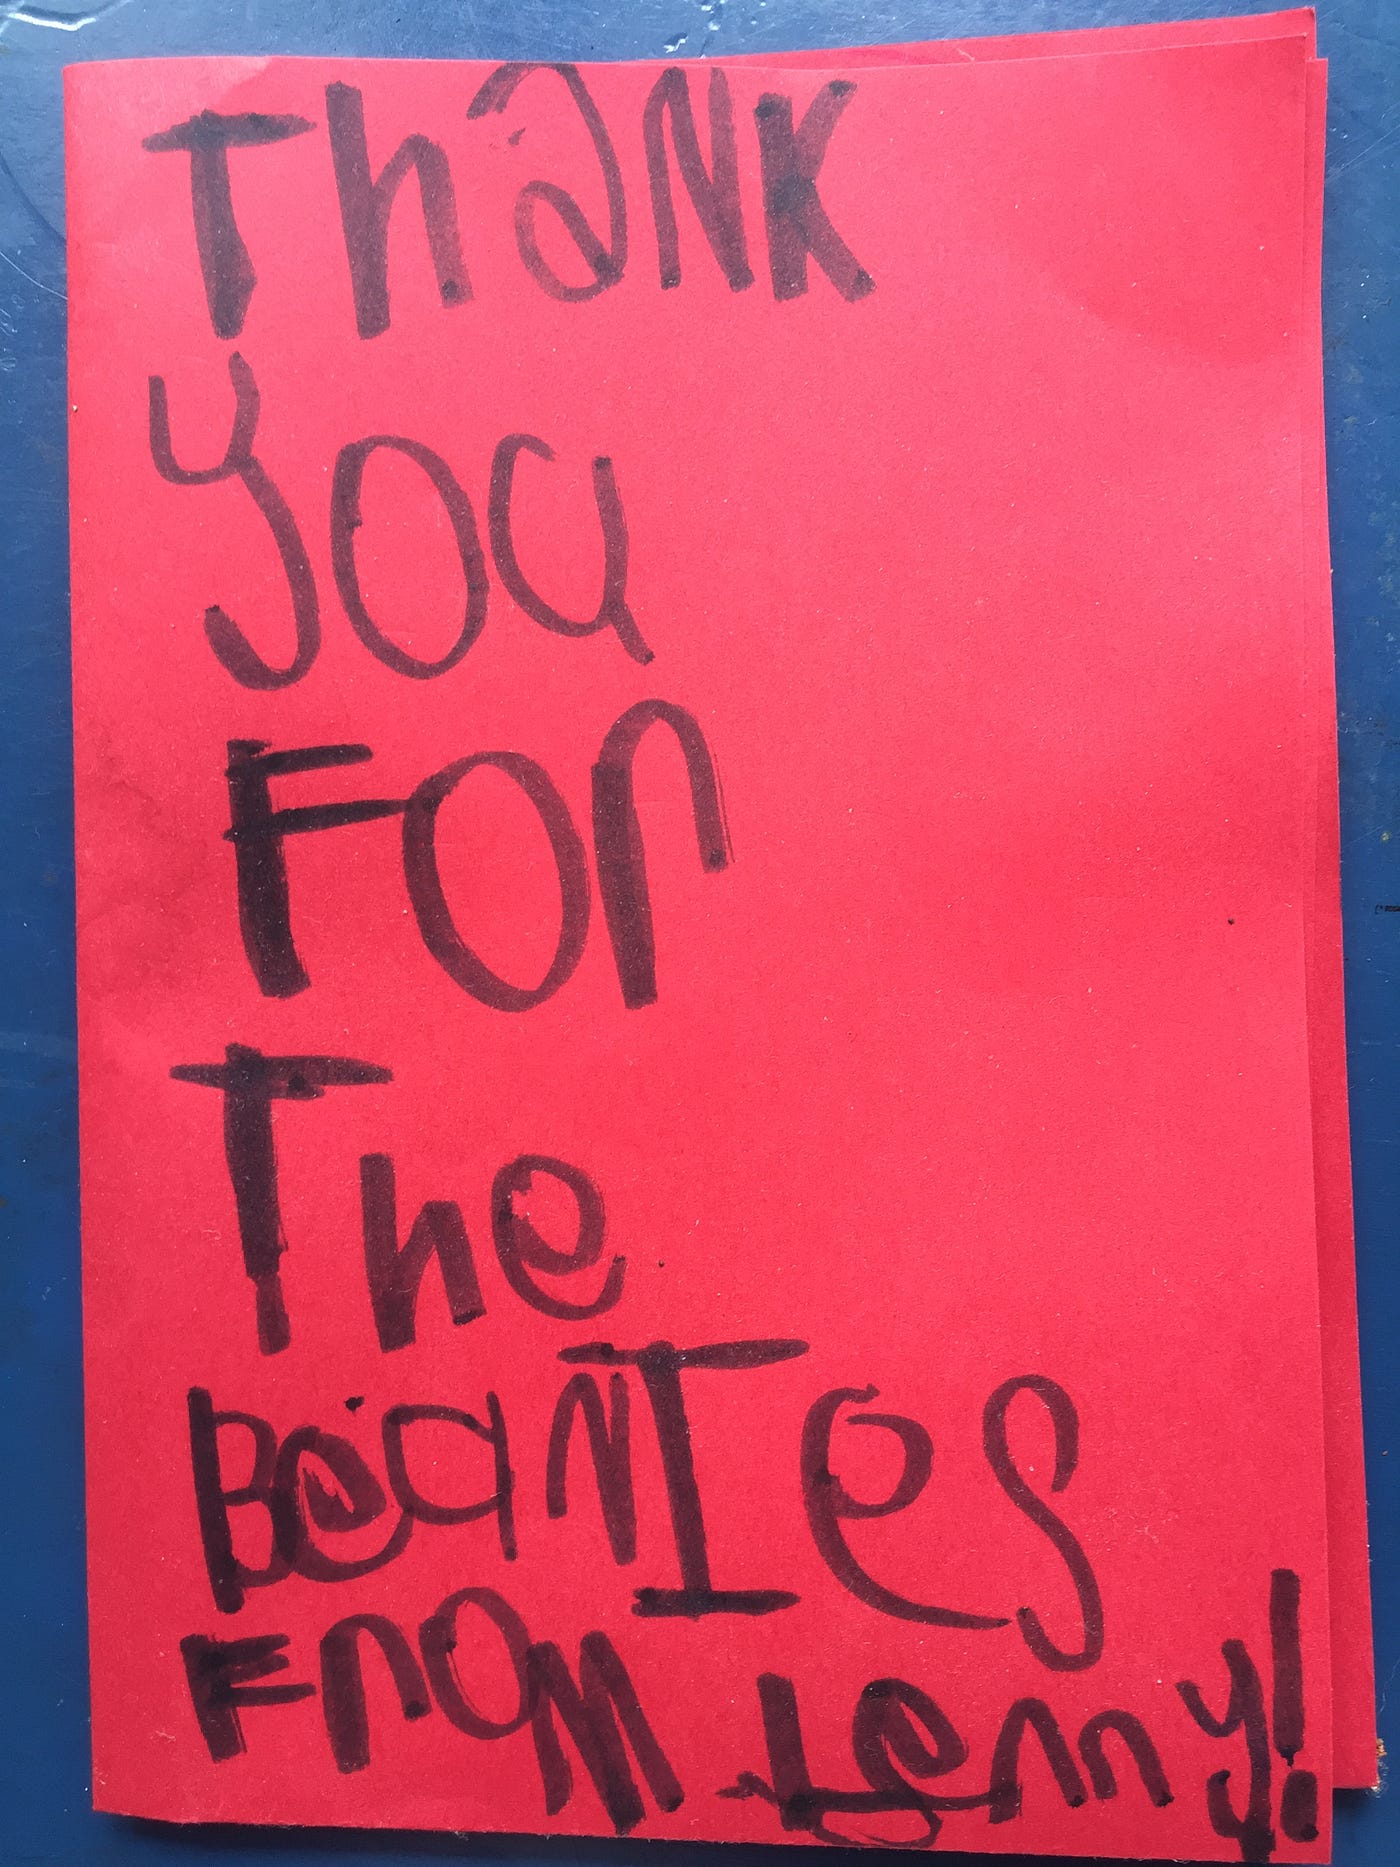 Thank
you
For
The
BeanIes
From Lenny!